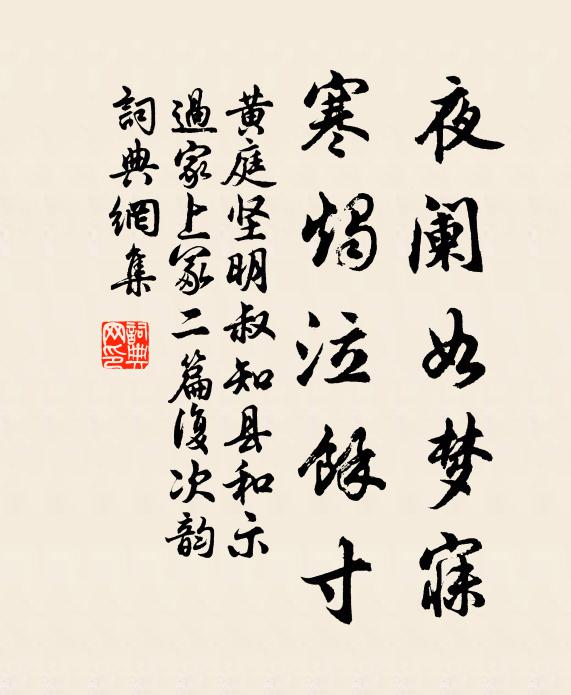 夜阑如梦寐
寒烛泣餘寸
黄庭坚明叔知县和示
過家上冢二篇復次韵
詞典網集
詞典网印